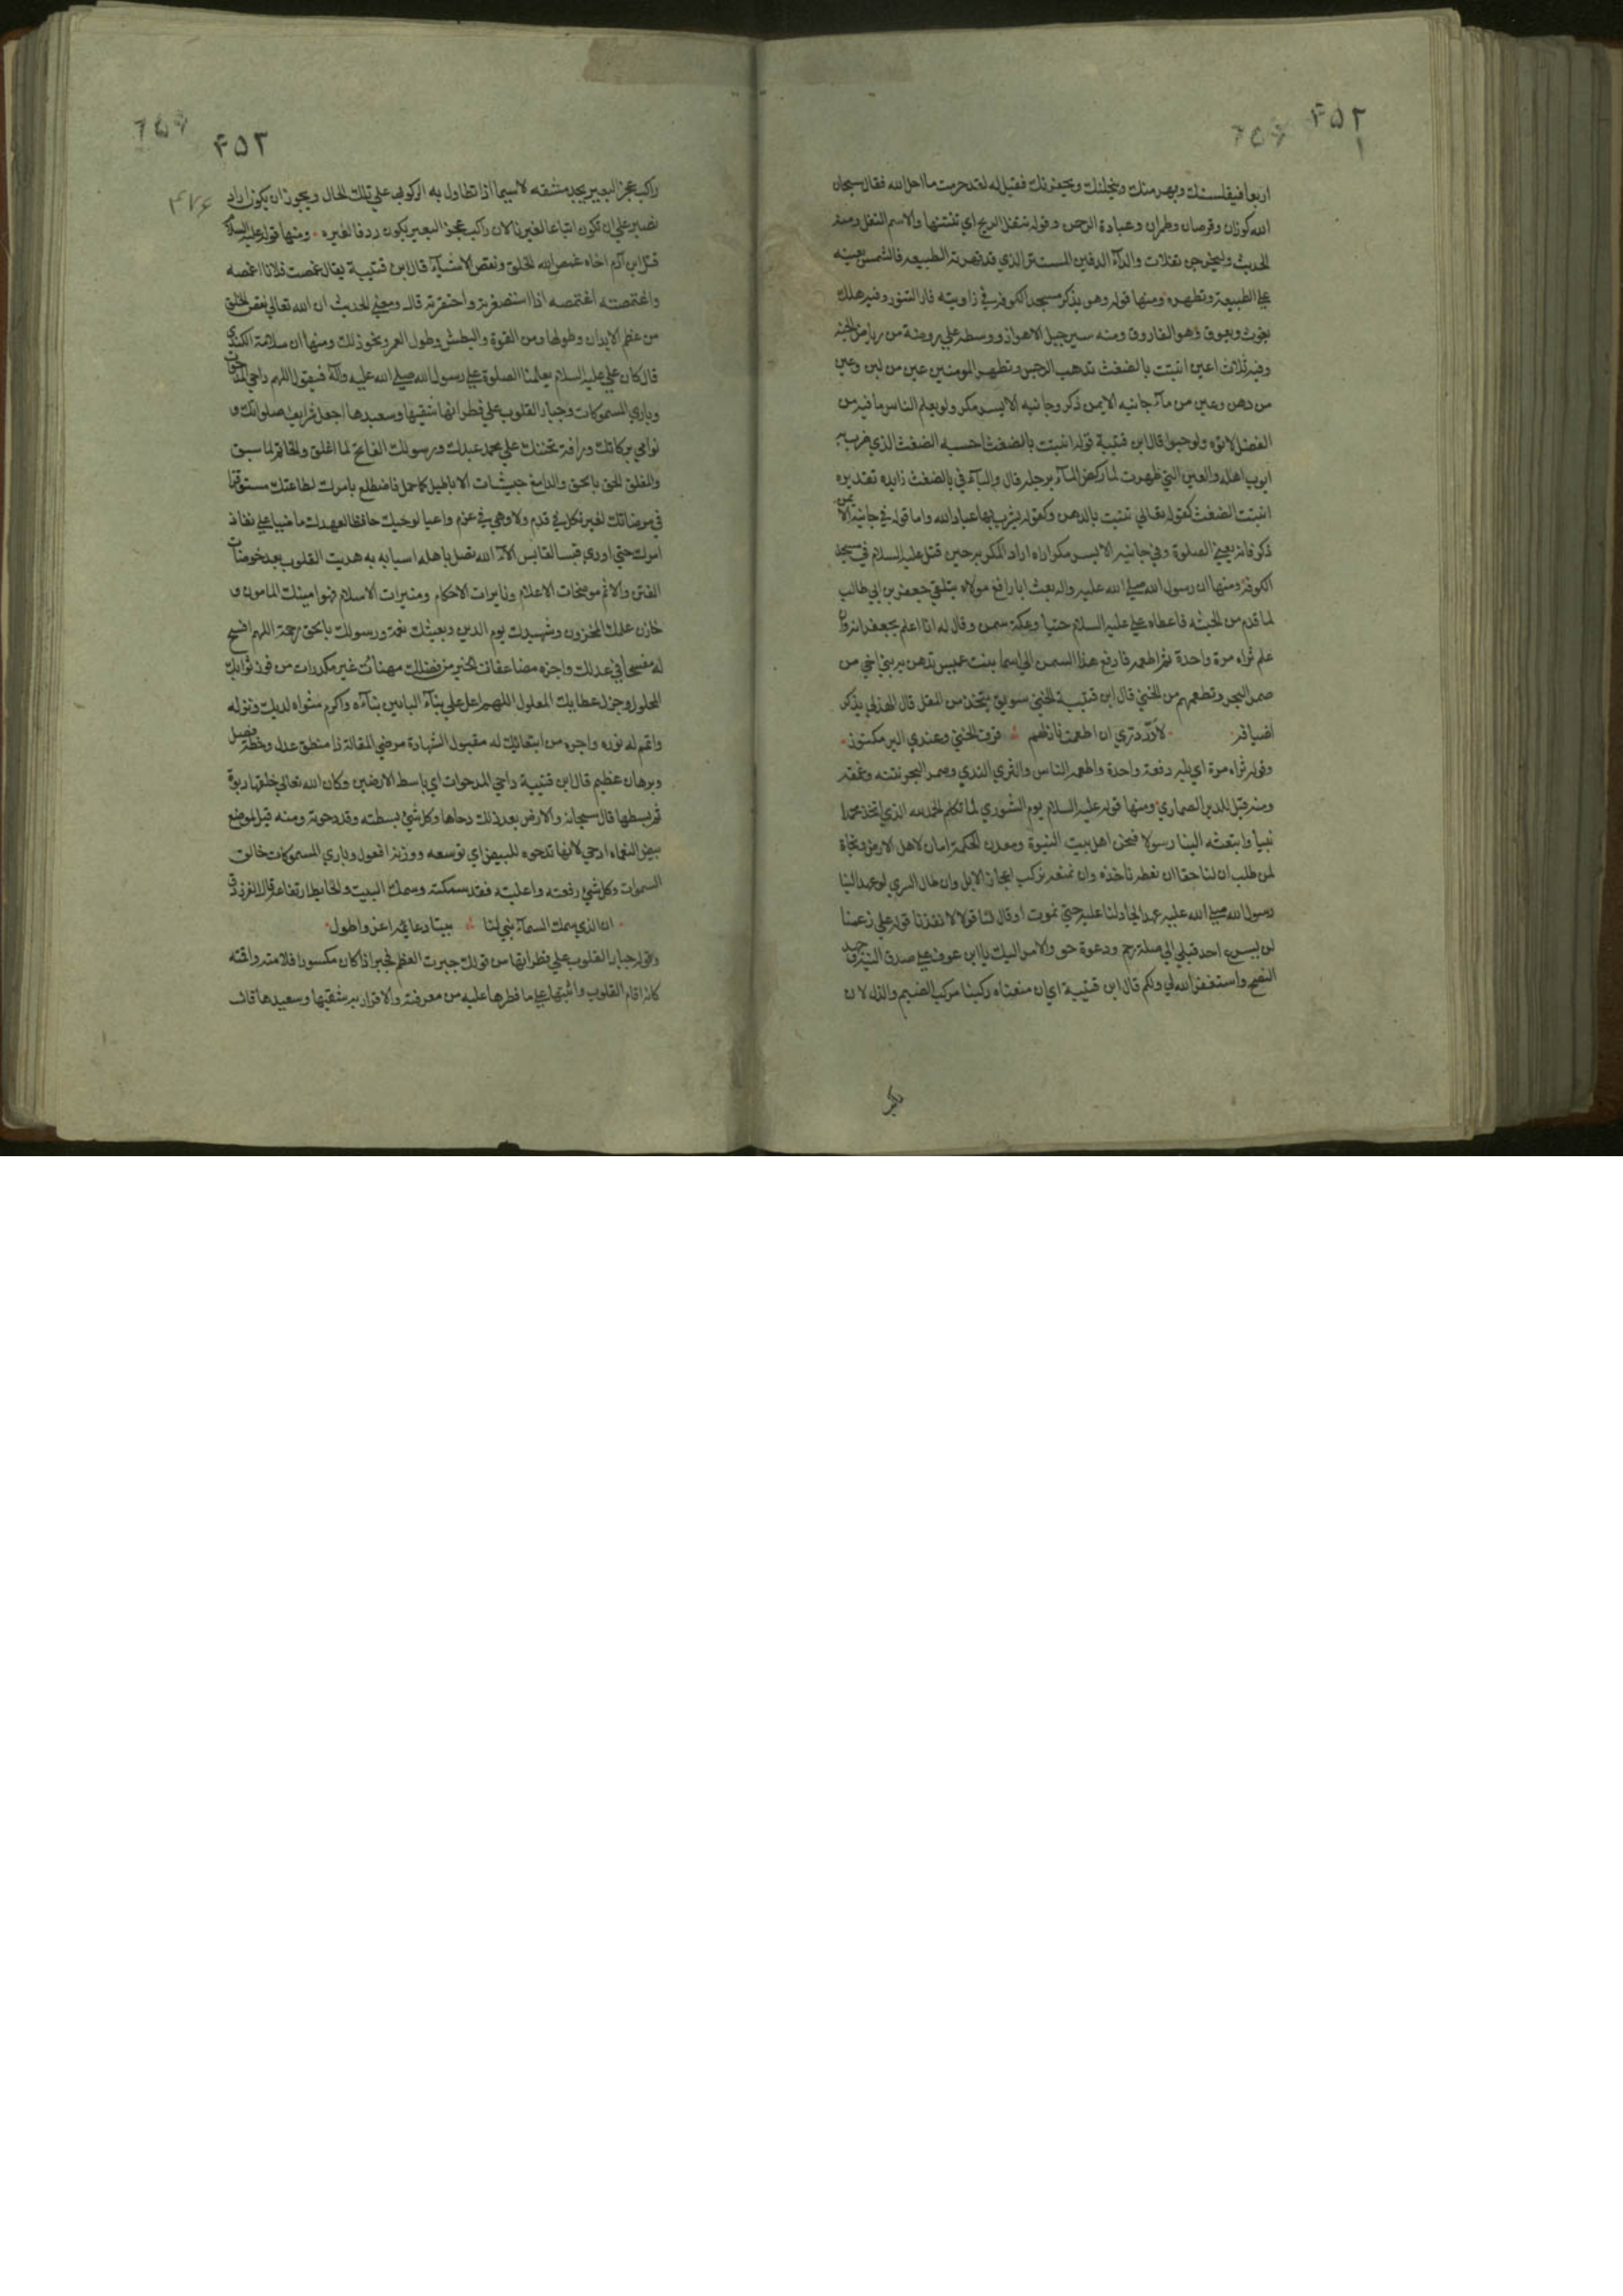 ۴۵۲
اربعا فيفلسنك ويهرمنك وينحلنك ويحيفرنك فقيل له لقد حرمت ما احل الله فقال سبحان
الله كوزان وقرصان وطمران وعبادة الرحمن وقوله تتفل الريح اي تنتنها والاسم التفل ومنه
الحديث وليخرجن تفلات والداء الدفين المستتر الذي قد قهرته الطبيعة فالشمس يعينه
علي الطبيعة وتظهره ومنها قوله وهو يذكر مسجد الكوفة في زاويته فار التنور وفيه هلك
يغوث ويعوق وهو الفاروق ومنه سير جبل الاهواز ووسطه علي روضة من رياض الجنة
وفيه ثلاث اعين انبتت بالضغث تذهب الرجس وتطهر المومنين عين من لبن وعين
من دهن وعين من ماء جانبه الايمن ذكر وجانبه الايسر مكر ولو يعلم الناس ما فيه من
الفضل لاتوه ولو حبوا قال ابن قتيبة قوله انبتت بالضغث احسبه الضغث الذي ضرب به
ايوب اهله والعين التي ظهرت لما ركض الماء برجله قال والباء في بالضغث زايده تقديره
انبتت الضغث كقوله تعالي تنبت بالدهن وكقوله يشرب بها عباد الله واما قوله في جانبه الايمن
ذكر فانه يعني الصلوة وفي جانبه الايسر مكر اراه اراد المكر به حين قتل عليه السلام في مسجد
الكوفة ومنها ان رسول الله صلي الله عليه واله بعث ابا رافع مولاه يتلقي جعفر بن ابي طالب
لما قدم من الحبشه فاعطاه علي عليه السلام حتيا وعكة سمن وقال له انا اعلم بجعفر انه ان
علم ثراه مرة واحدة ثم اطعمه فادفع هذا السمن الي اسما بنت عميس تدهن به بني اخي من
صمر البحر وتطعمهم من الحتي قال ابن قتيبة الحتي سويق يتخذ من المقل قال الهذلي يذكر
اضيافه لا درّ درّي ان اطعمت نازلهم قرف الحتي وعندي البر مكنوز
وقوله ثراه مرة اي بله دفعة واحدة واطعمه الناس والثري الندي وصمر البحر نتنه وغمقه
ومنه قيل للدبر الصماري ومنها قوله عليه السلام يوم الشوري لما تكلم الحمد لله الذي اتخذ محمدا
نبيا وابتعثه الينا رسولا فنحن اهل بيت النبوة ومعدن الحكمة امان لاهل الارض ونجاة
لمن طلب ان لنا حقا ان نعطه ناخذه وان نمنعه نركب اعجاز الابل وان طال السري لو عهد الينا
رسول الله صلي الله عليه عهدا لجادلنا عليه حتي نموت او قال لنا قولا لانفذنا قوله علي رغمنا
لن يسرع احد قبلي الي صلة رحم ودعوة حق والامر اليك يا ابن عوف علي صدق النية وجهد
النصح واستغفر الله لي ولكم قال ابن قتيبة اي ان منعناه ركبنا مركب الضيم والذل لان
۴۵۲
۴۷۶
راكب عجز البعير يجد مشقه لا سيما اذا تطاول به الركوب علي تلك الحال ويجوز ان يكون اراد
نصبر علي ان نكون اتباعا لغيرنا لان راكب عجز البعير يكون ردفا لغيره ومنها قوله عليه السلام
قتل ابن آدم اخاه غمص الله الخلق ونقص الاشياء قال ابن قتيبة يقال غمصت فلانا اغمصه
واغتمصته اغتمصه اذا استصغرته واحتقرته قال ومعني الحديث ان الله تعالي نقص الخلق
من عظم الابدان وطولها ومن القوة والبطش وطول العمر ونحو ذلك ومنها ان سلامة الكندي
قال كان علي عليه السلام يعلمنا الصلوة علي رسول الله صلي الله عليه وآله فيقول اللهم داحي المدحوات
وباري المسموكات وجبار القلوب علي فطراتها شقيها وسعيدها اجعل شرايف صلواتك و
نوامي بركاتك ورافة تحننك علي محمد عبدك ورسولك الفاتح لما اغلق والخاتم لما سبق
والمعلن الحق بالحق والدامغ جيشات الاباطيل كما حمل فاضطلع بامرك لطاعتك مستوفزا
في مرضاتك لغير نكل في قدم ولا وهي في عزم واعيا لوحيك حافظا لعهدك ماضيا علي نفاذ
امرك حتي اوري قبسا لقابس الاء الله تصل باهله اسبابه به هديت القلوب بعد خوضات
الفتن والاثم موضحات الاعلام ونايرات الاحكام ومنيرات الاسلام فهو امينك المامون و
خازن علمك المخزون وشهيدك يوم الدين وبعيثك نعمة ورسولك بالحق رحمة اللهم افسح
له مفسحا في عدلك واجزه مضاعفات الخير من فضلك مهنات غير مكدرات من فوز ثوابك
المحلول وجزل عطايك المعلول اللهم اعل علي بناء البانين بناءه واكرم مثواه لديك ونزله
واتمم له نوره واجزه من ابتعاثك له مقبول الشهادة مرضي المقالة ذا منطق عدل وخطة فصل
وبرهان عظيم قال ابن قتيبة داحي المدحوات اي باسط الارضين وكان الله تعالي خلقها ربوة
ثم بسطها قال سبحانه والارض بعد ذلك دحاها وكل شي بسطته فقد دحوته ومنه قيل لموضع
بيض النعام ادحي لانها تدحوه للبيض اي توسعه ووزنه افعول وباري المسموكات خالق
السموات وكل شي رفعته واعليته فقد سمكته وسمك البيت والحايط ارتفاعه قال الفرزدق
ان الذي سمك السماء بني لنا بيتا دعايمه اعز واطول
وقوله جبار القلوب علي فطراتها من قولك جبرت العظم فجبر اذا كان مكسورا فلامته واقمته
كانه اقام القلوب واثبتها علي ما فطرها عليه من معرفته والاقرار به شقيها وسعيدها قال